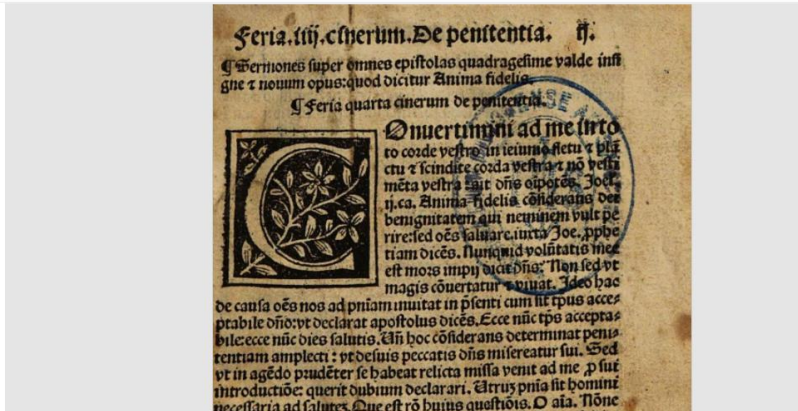 Feria.iiij.cinerum.De penitentia. ij.
¶ Sermones super omnes epistolas quadragesime valde insi
gne ⁊ nouum opus:quod dicitur Anima fidelis.
¶ Feria quarta cinerum de penitentia.
COnuertimini ad me in to
to corde vestro in ieiunio fletu ⁊ plā
ctu ⁊ scindite corda vestra ⁊ nō vesti
mēta vestra :ait dn̄s oīpotēs. Joel.
ij.ca. Anima fidelis cōsiderans dei
benignitatem qui neminem vult pe
rire:sed oēs saluare.iuxta Joe. ꝓphe
tiam dicēs. Nunquid volūtatis mee
est mors impij dicit dn̄s: Non sed vt
magis cōuertatur ⁊ viuat. Ideo hac
de causa oēs nos ad pn̄iam inuitat in p̄senti cum sit tp̄us acce⸗
ptabile dn̄o:vt declarat apostolus dicēs.Ecce nūc tp̄s accepta⸗
bile:ecce nūc dies salutis. Un̄ hoc cōsiderans determinat peni⸗
tentiam amplecti : vt desuis peccatis dn̄s misereatur sui. Sed
vt in agēdo prudēter se habeat relicta missa venit ad me ꝓ sui
introductiōe: querit dubium declarari. Utruꝫ pn̄ia sit homini
necessaria ad saluteꝫ. Que est rō huius questiōis. O aīa. Nōne